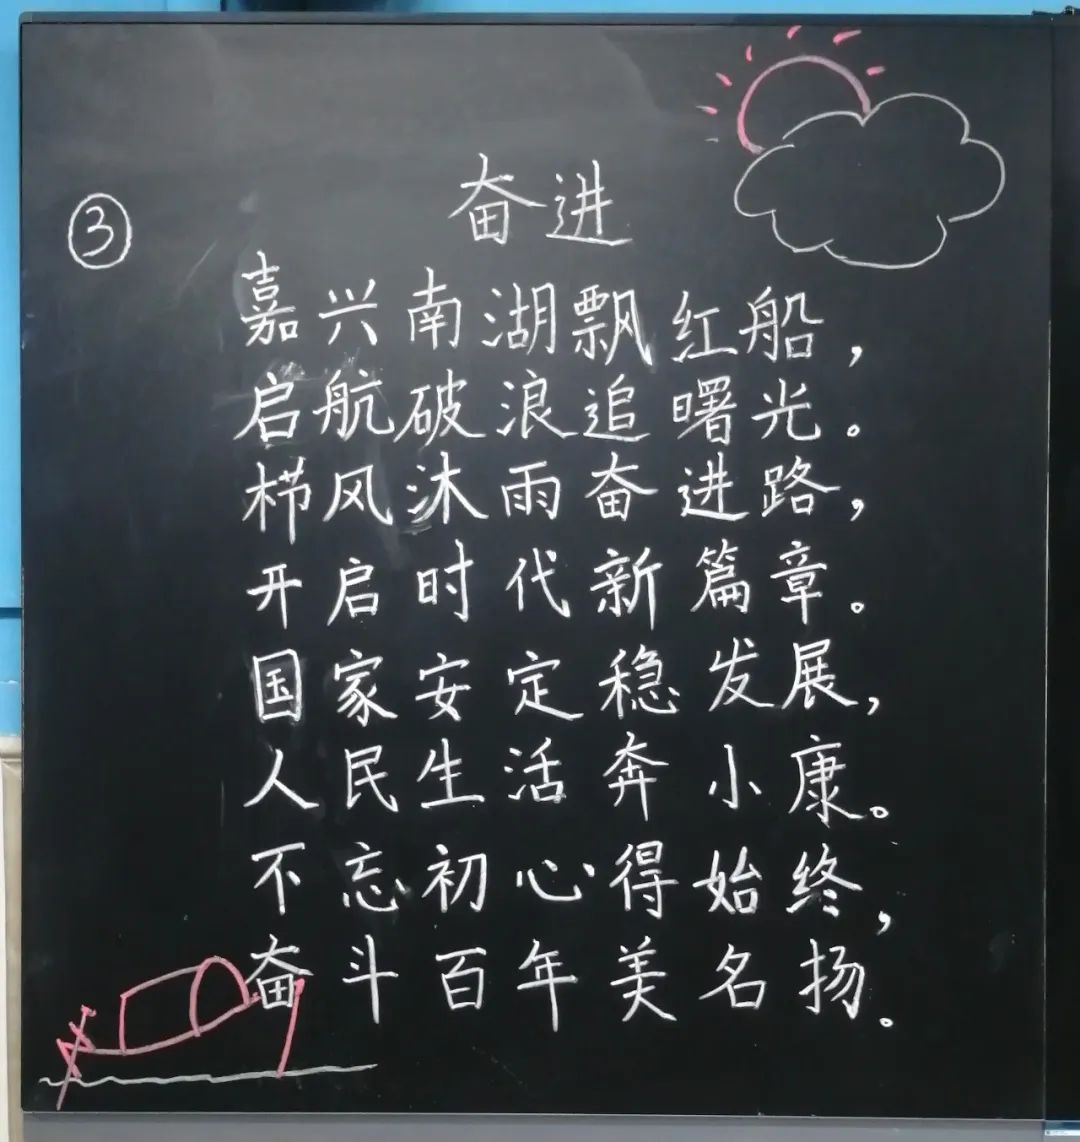 ③
奋进
嘉兴南湖飘红船，
启航破浪追曙光。
栉风沐雨奋进路，
开启时代新篇章。
国家安定稳发展，
人民生活奔小康。
不忘初心得始终，
奋斗百年美名扬。